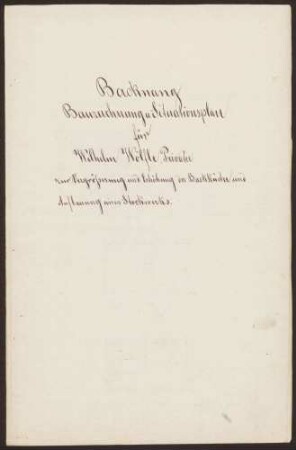 Backnang
Bauzeichnung u. Situationsplan
für
Wilhelm Wölfle
zur Vergrößerung und Erhöhung der Backküche und
Aufbauung eines Stockwerks.